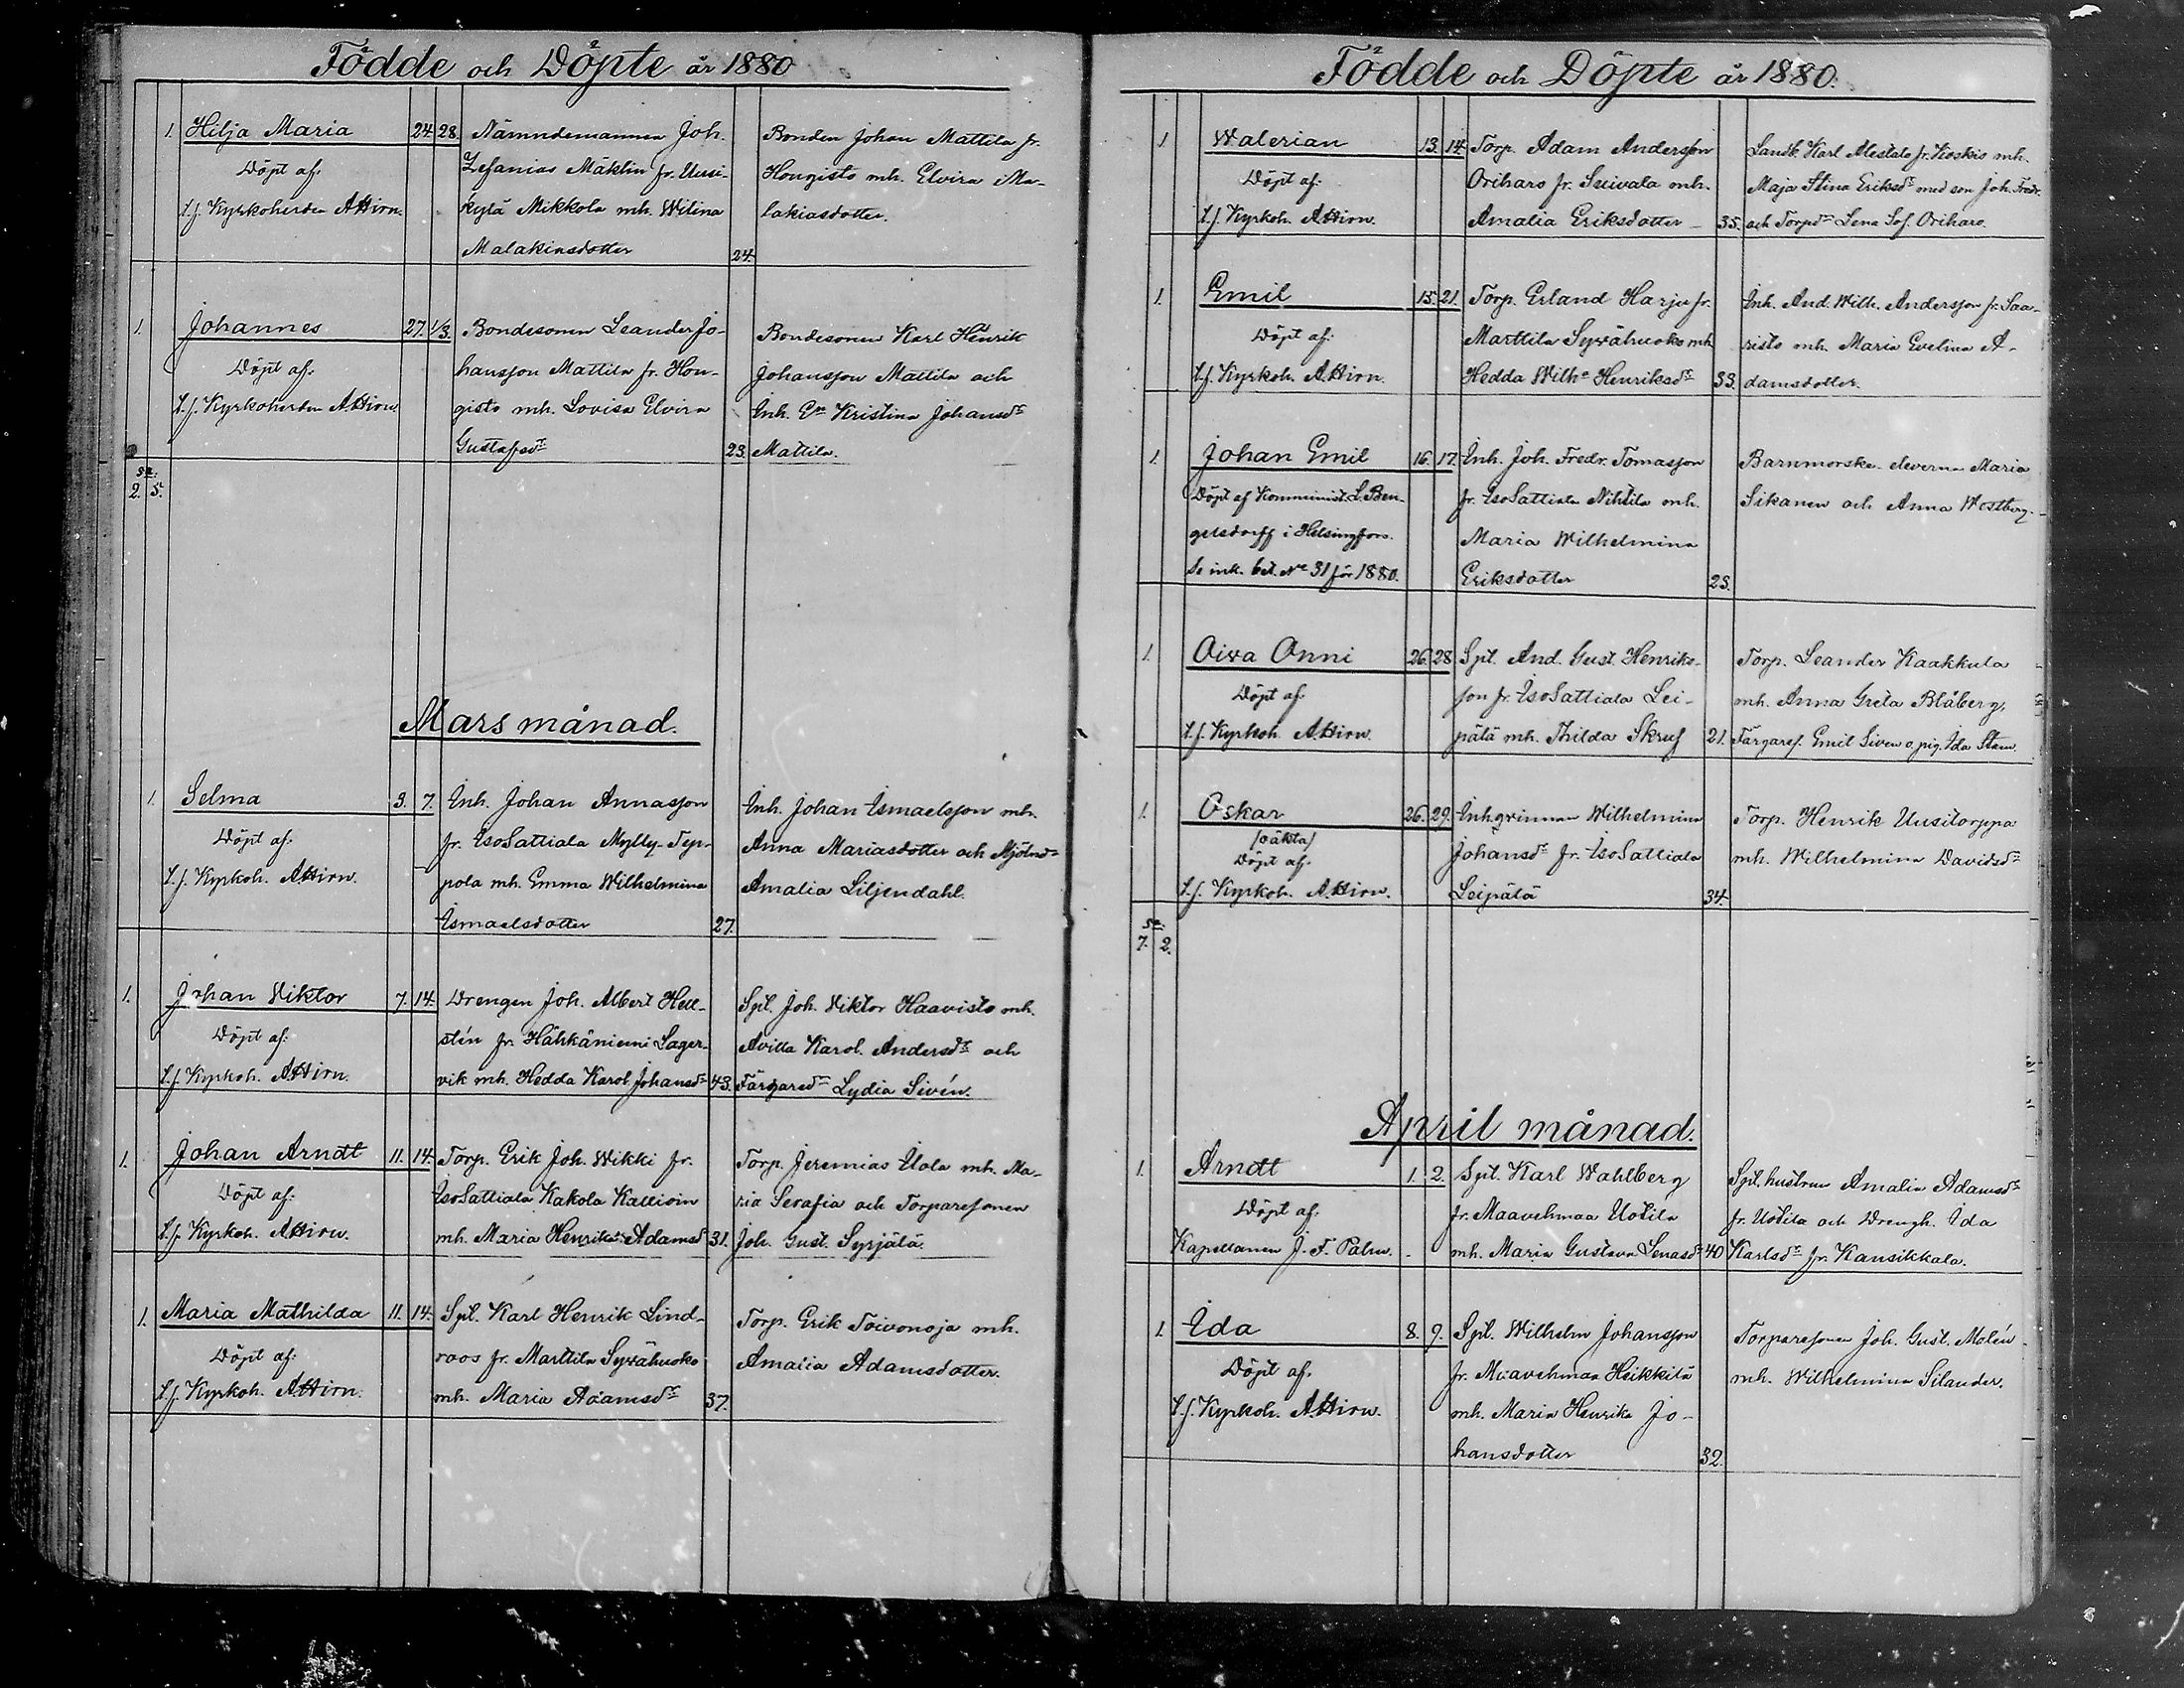 Födde och Döpte år 1880
1. Hilja Maria 24. 28. Nämndemannen Joh. Bonden Johan Mattila fr.
Döpt af: Zefanias Mäklin fr. Uusi- Hongisto mh. Elvira Ma-
t.f. Kyrkoherden A. Hirn. kylä Mikkola mh. Wilina lakiasdotter.
Malakiasdotter 24.
1. Johannes 27. 1/3. Bondesonen Leander Jo- Bondesonen Karl Henrik
Döpt af: hansson Mattila fr. Hon- Johansson Mattila och
t.f. Kyrkoherden A. Hirn. gisto mh. Lovisa Elvira Inh. Kristina Johansdr
Gustafsdr 23. Mattila.
Sa:
2. 5.
Mars månad.
1. Selma 3. 7. Inh. Johan Annasson Inh. Johan Ismaelsson mh.
Döpt af: fr. IsoSattiala Mylly-Tep- Anna Mariasdotter och Mjölnd
t.f. Kyrkoh. A. Hirn. pola mh. Emma Wilhelmina Amalia Liljendahl.
Ismaelsdotter 27.
1. Johan Viktor 7. 14. Drengen Joh. Albert Hell- Spt. Joh. Viktor Haavisto mh.
Döpt af: stén fr. Hähkäniemi Lager- Avilla Karol. Andersdr och
t.f. Kyrkoh. A. Hirn. vik mh. Hedda Karol. Johansdr 43. Färgaredr Lydia Sivén.
1. Johan Arndt 11. 14. Torp. Erik Joh. Wikki fr. Torp. Jeremias Uola mh. Ma-
Döpt af: IsoSattiala Kakola Kallioin ria Serafia och Torparesonen
t.f. Kyrkoh. A. Hirn. mh. Maria Henrika Adamsd 31. Joh. Gust. Syrjälä.
1. Maria Mathilda 11. 14. Spt. Karl Henrik Lind- Torp. Erik Toivonoja mh.
Döpt af: roos fr. Marttila Sywähuoko Amalia Adamsdotter.
t.f. Kyrkoh. A. Hirn. mh. Maria Adamsdr 37.
Födde och Döpte år 1880.
1 Walerian 13. 14. Torp. Adam Andersson Landb. Karl Alestalo fr. Koskis mh.
Döpt af: Oriharo fr. Suivala mh. Maja Stina Eriksdr med son Joh. Fredr.
t.f. Kyrkoh. A. Hirn. Amalia Eriksdotter 35. och Torpdr Lena Sof. Oriharo.
1. Emil 15. 21. Torp. Erland Harju fr. Inh. And. Wilh. Andersson fr. Saa-
Döpt af: Marttila Sywähuoko mh. risto mh. Maria Evelina A-
t.f. Kyrkoh. A. Hirn. Hedda Wilha Henriksdr 33. damsdotter.
1. Johan Emil 16. 17. Inh. Joh. Fredr. Tomasson Barnmorske-eleverna Maria
Döpt af Komminist. L. Ben- fr. IsoSattiala Nihtila mh. Sikanen och Anna Westberg.
gelsdorff i Helsingfors. Maria Wilhelmina
Se ink. bet. No 31 för 1880. Eriksdotter 23.
1. Oiva Onni 26. 28 Spt. And. Gust. Henriks- Torp. Leander Kaakkula
Döpt af: son fr. IsoSattiala Lei- mh. Anna Greta Blåberg,
t.f. Kyrkoh. A. Hirn. pälä mh. Thilda Skruf 21. Färgaref. Emil Siven o. pig. Ida Stam.
1. Oskar 26. 29. Inh.qvinnan Wilhelmina Torp. Henrik Uusitorppa
/oäkta/
Döpt af: Johansdr fr. IsoSattiala mh. Wilhelmina Davidsdr
t.f. Kyrkoh. A. Hirn. Leipälä 34.
Sa:
7. 2.
April månad.
1. Arndt 1. 2. Spt. Karl Wahlberg Spt.hustrun Amalia Adamsdr
Döpt af: fr. Maavehmaa Uotila fr. Uotila och Drengh. Ida
Kapellanen J. F. Palm. mh. Maria Gustava Lenasdr 40 Karlsdr fr. Kansikkala.
1. Ida 8. 9. Spt. Wilhelm Johansson Torparesonen Joh. Gust. Molén
Döpt af: fr. Maavehmaa Heikkilä mh. Wilhelmina Silander.
t.f. Kyrkoh. A. Hirn. mh. Maria Henrika Jo-
hansdotter 32.